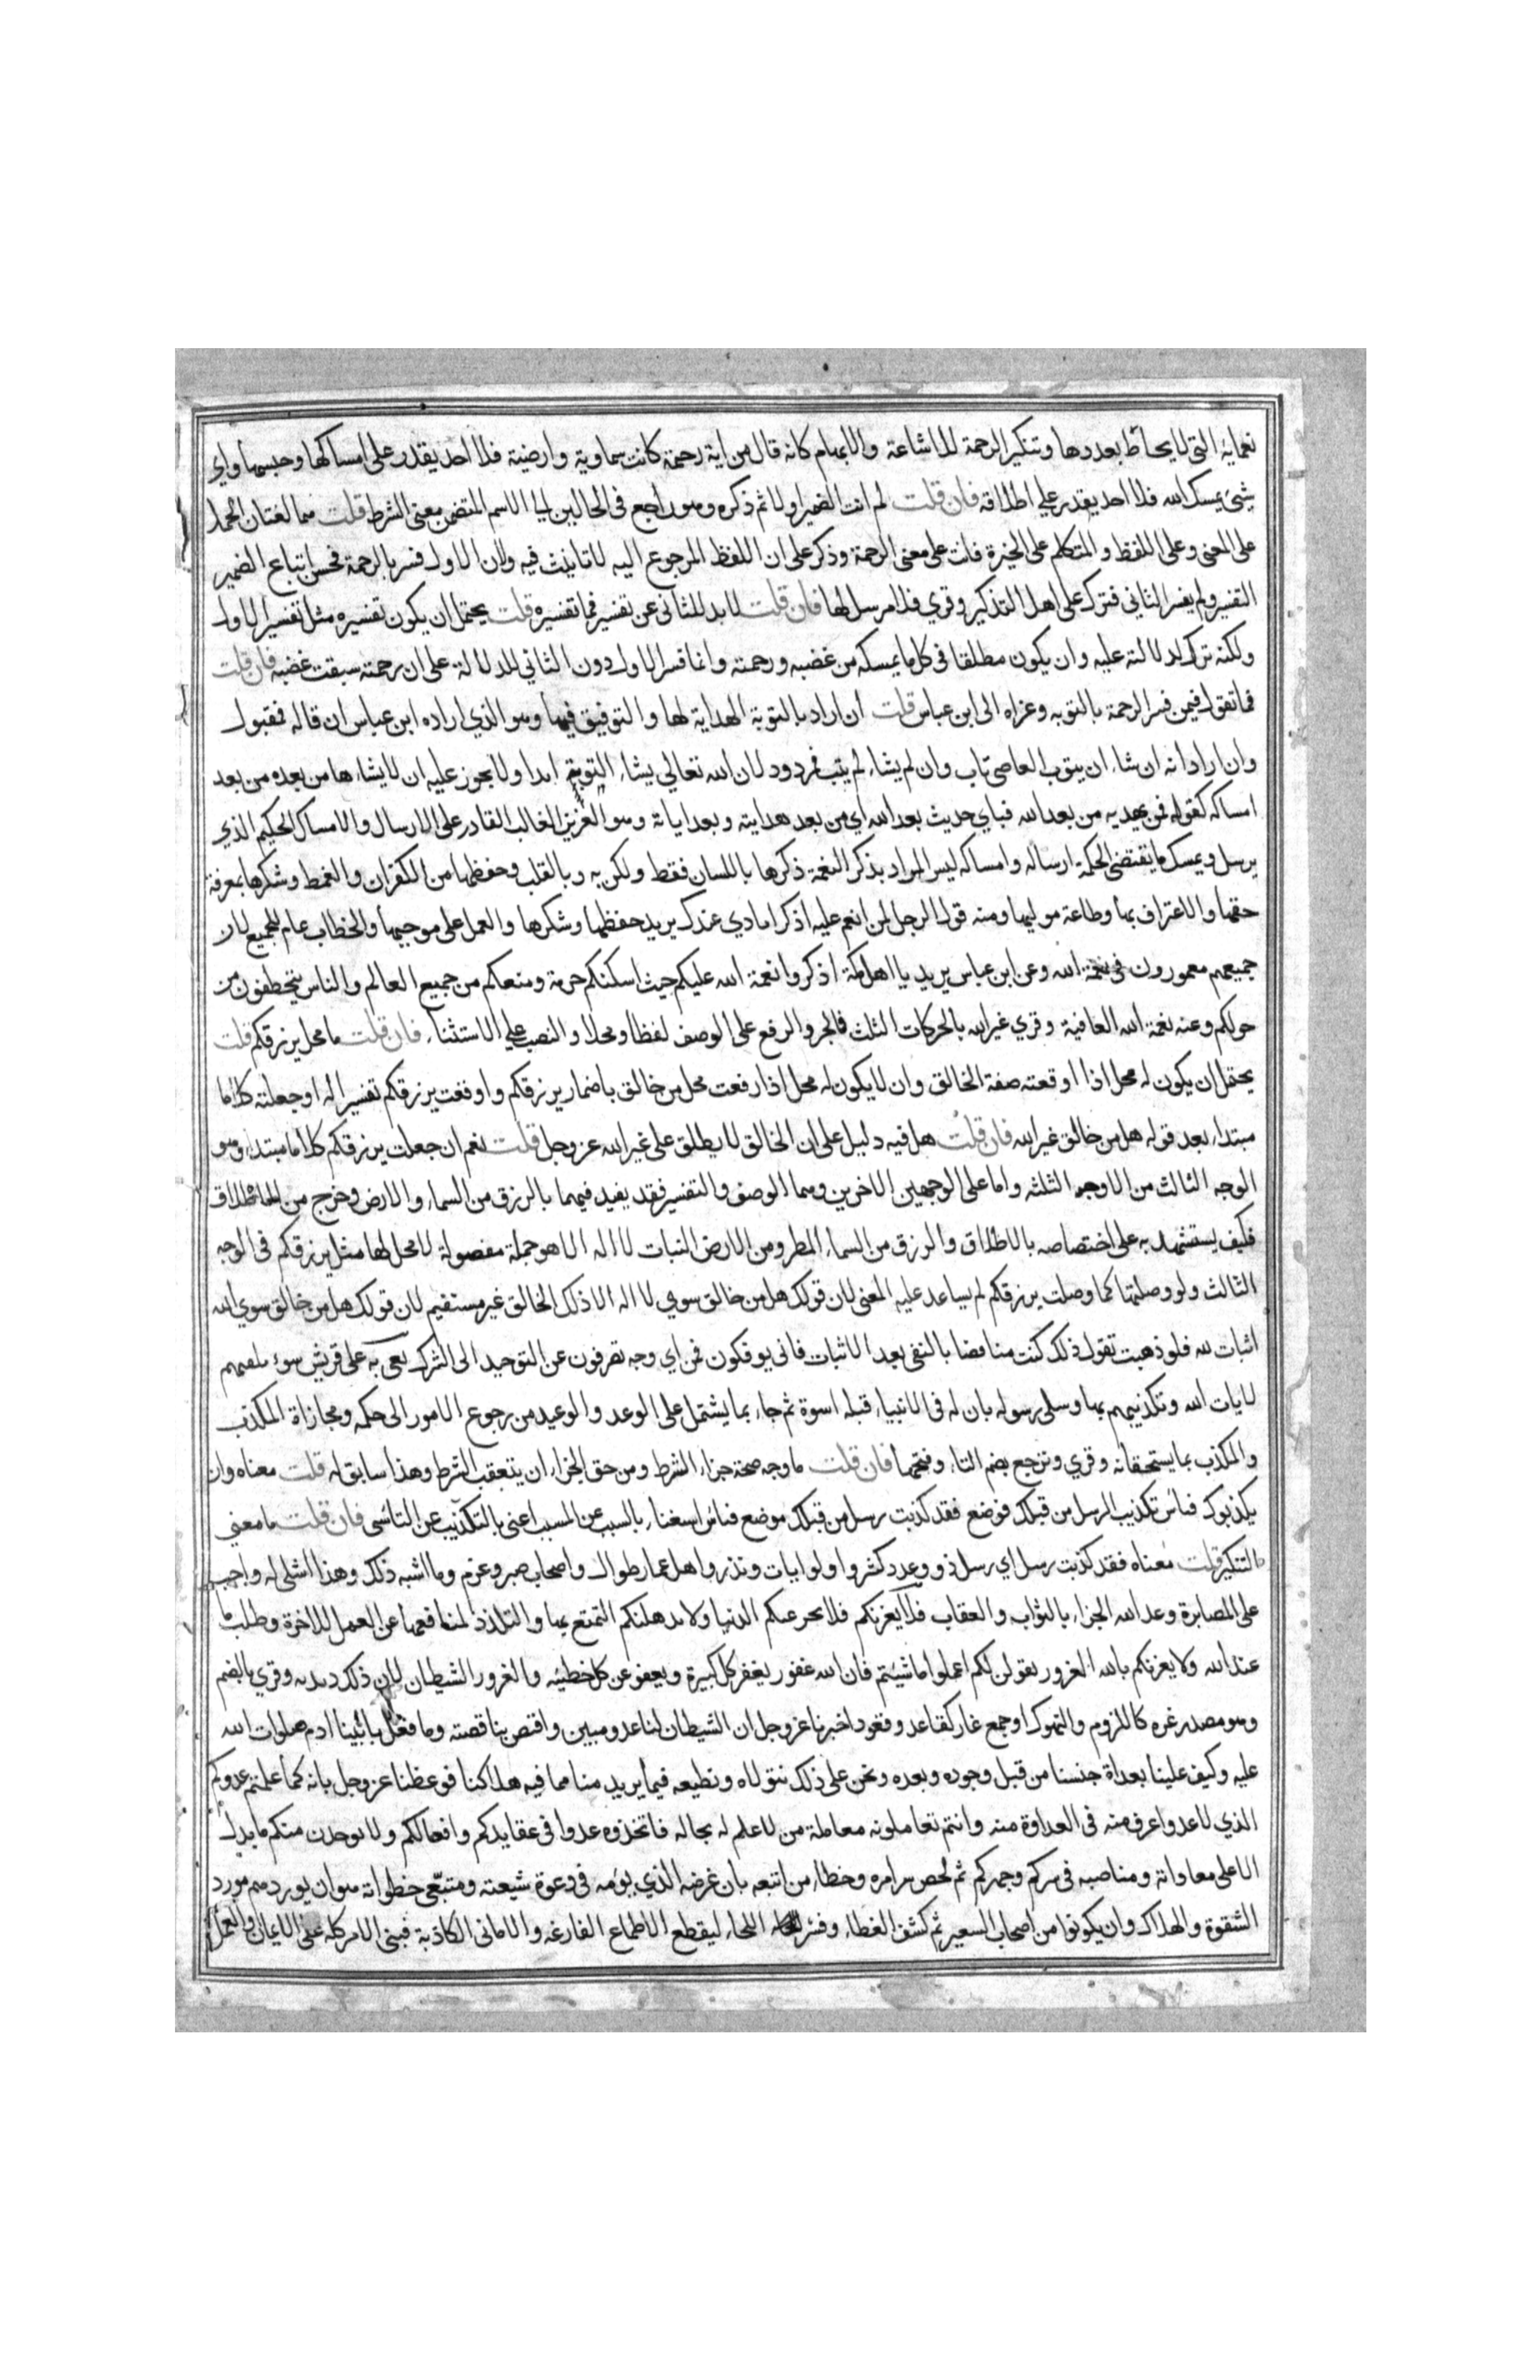 نعمايه التي لا يحاط بعددها وتنكير الرحمة للاشاعة والابهام كانه قال من اية رحمة كانت سماوية وارضية فلا احد يقدر على امساكها وحبسها واي
شيء يمسك الله فلا احد يقدر على اطلاقه فان قلت لم انث الضمير اولا ثم ذكره وهو راجع في الحالين الى الاسم المتضمن معنى الشرط قلت هما لغتان الحمل
على المعنى وعلى اللفظ والمتكلم على الخيرة فانث على معنى الرحمة وذكر على ان اللفظ المرجوع اليه لا تانيث فيه ولان الاول فسر بالرحمة فحسن اتباع الضمير
التفسير ولم يفسر الثاني فترك على اصل التذكير وقري فلا مرسل لها فان قلت لا بد للثاني عن تفسير فما تفسيره قلت يحتمل ان يكون تفسيره مثل تفسير الاول
ولكنه ترك لدلالته عليه وان يكون مطلقا في كل ما يمسكه من غضبه ورحمته وانما فسر الاول دون الثاني للدلالة على ان رحمته سبقت غضبه فان قلت
فما تقول فيمن فسر الرحمة بالتوبه وعزاه الى ابن عباس قلت ان اراد بالتوبة الهداية لها والتوفيق فيها وهو الذي اراده ابن عباس ان قاله فمقبول
وان اراد انه ان شاء ان يتوب العاصي تاب وان لم يشاء لم يتب فمردود لان الله تعالى يشاء التوبة ابدا ولا يجوز عليه ان لا يشاءها من بعده من بعد
امساكه كقوله فمن يهديه من بعد الله فباي حديث بعد الله اي من بعد هدايته وبعد اياته وهو العزيز الغالب القادر على الارسال والامساك الحكيم الذي
يرسل ويمسك ما يقتضي الحكمة ارساله وامساكه ليس المراد بذكر النعمة ذكرها باللسان فقط ولكن به وبالقلب وحفظها من الكفران والغمط وشكرها بمعرفة
حقها والاعتراف بها وطاعة موليها ومنه قول الرجل لمن انعم عليه اذكر ايادي عندك يريد حفظها وشكرها والعمل على موجبها والخطاب عام للجميع لان
جميعهم مغمورون في نعمة الله وعن ابن عباس يريد يا اهل مكة اذكروا نعمة الله عليكم حيث اسكنكم حرمه ومنعكم من جميع العالم والناس يتخطفون من
حولكم وعنه نعمة الله العافية وقري غير الله بالحركات الثلث فالجر والرفع على الوصف لفظا ومحلا والنصب على الاستثناء فان قلت ما محل يرزقكم قلت
يحتمل ان يكون له محل اذا اوقعته صفة الخالق وان لا يكون له محل اذا رفعت محل من خالق باضمار يرزقكم واوقعت يرزقكم تفسيرا له او جعلته كلاما
مبتداء بعد قوله هل من خالق غير الله فان قلت هل فيه دليل على ان الخالق لا يطلق على غير الله عز وجل قلت نعم ان جعلت يرزقكم كلاما مبتداء وهو
الوجه الثالث من الاوجه الثلثه واما على الوجهين الاخرين وهما الوصف والتفسير فقد يفيد فيهما بالرزق من السماء والارض وخرج من الاطلاق
فكيف يستشهد به على اختصاصه بالاطلاق والرزق من السماء المطر ومن الارض النبات لا اله الا هو جملة مفصولة لا محل لها مثل يرزقكم في الوجه
الثالث ولو وصلتها كما وصلت يرزقكم لم يساعد عليه المعنى لان قولك هل من خالق سوى لا اله الا ذلك الخالق غير مستقيم لان قولك هل من خالق سوى الله
اثبات لله فلو ذهبت تقول ذلك كنت مناقضا بالنفي بعد الاثبات فانى يوفكون فمن اي وجه تصرفون عن التوحيد الى الشرك نعى به على قريش سوء تلقيهم
لايات الله وتكذيبهم بها وسلى رسوله بان له في الانبياء قبله اسوة ثم جاء بما يشتمل على الوعد والوعيد من رجوع الامور الى حكمه ومجازاة المكذب
والمكذب بما يستحقانه وقري وترجع بضم التاء وفتحها فان قلت ما وجه صحة جزاء الشرط ومن حق الجزاء ان يتعقب الشرط وهذا سابق له قلت معناه وان
يكذبوك فتاس بتكذيب الرسل من قبلك فوضع فقد كذبت رسل من قبلك موضع فتاس استغناء بالسبب عن المسبب اعني بالتكذيب عن التاسي فان قلت ما معنى
التنكير قلت معناه فقد كذبت رسل اي رسل ذوو عدد كثير واولو ايات ونذر واهل اعمار طوال واصحاب صبر وعزم وما اشبه ذلك وهذا اسلى له واحب
على المصابرة وعد الله الجزاء بالثواب والعقاب فلا يغرنكم فلا يخدعنكم الدنيا ولا يذهلنكم التمتع بها والتلذذ لمنافعها عن العمل للاخرة وطلب ما
عند الله ولا يغرنكم بالله الغرور يقولن لكم اعملوا ما شيتم فان الله غفور يغفر كل كبيرة ويعفو عن كل خطيئه والغرور الشيطان لان ذلك ديدنه وقري بالضم
وهو مصدر غره كاللزوم والنهوك او جمع غار كقاعد وقعود اخبرنا عز وجل ان الشيطان لنا عدو مبين واقتص بنا قصته وما فعل بابينا ادم صلوات الله
عليه وكيف علينا بعداة جنسنا من قبل وجوده وبعده ونحن على ذلك نتولاه ونطيعه فيما يريد منا مما فيه هلاكنا فوعظنا عز وجل بانه كما علمتم عدوكم
الذي لا عدو اعرف منه في العداوة منه وانتم تعاملونه معاملة من لا علم له بحاله فاتخذوه عدوا في عقايدكم وافعالكم ولا يوجدن منكم ما يدل
الا على معاداته ومناصبه في سركم وجهركم ثم لخص سر امره وخطاء من اتبعه بان غرضه الذي يؤمه في دعوة شيعته ومتبعي خطواته هو ان يوردهم مورد
الشقوة والهلاك وان يكونوا من اصحاب السعير ثم كشف الغطاء وقشر اللحاء ليقطع الاطماع الفارغه والاماني الكاذبة فبنى الامر كله على الايمان والعمل